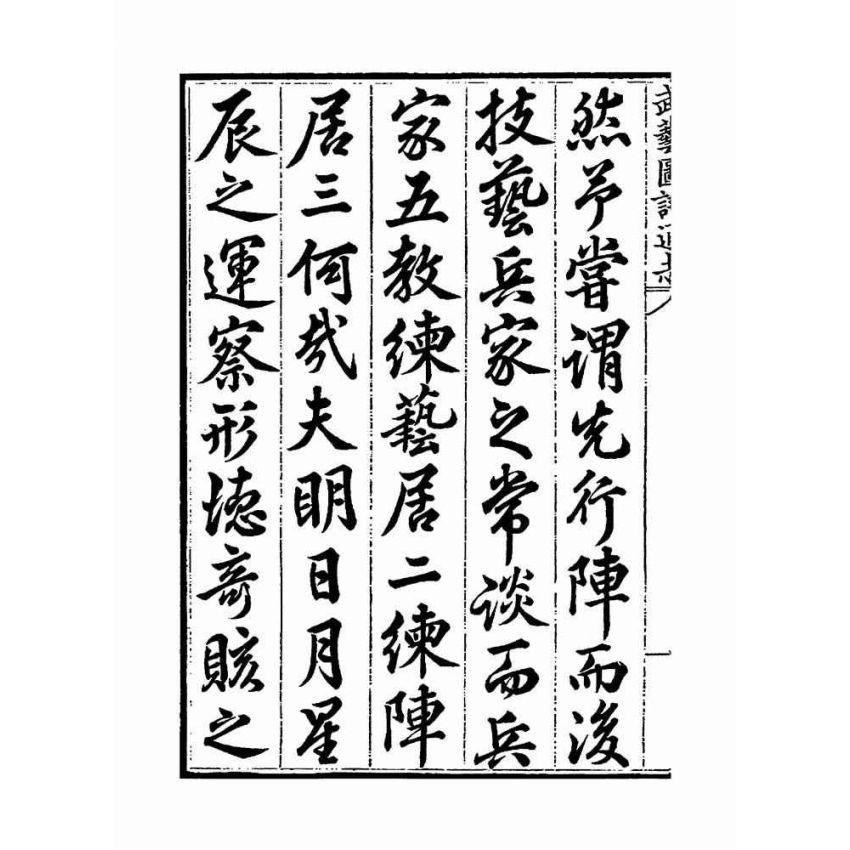 武藝圖譜通志 一
然予嘗謂先行陣而後
技藝兵家之常談而兵
家五教練藝居二練陣
居三何哉夫明日月星
辰之運察形德奇賅之